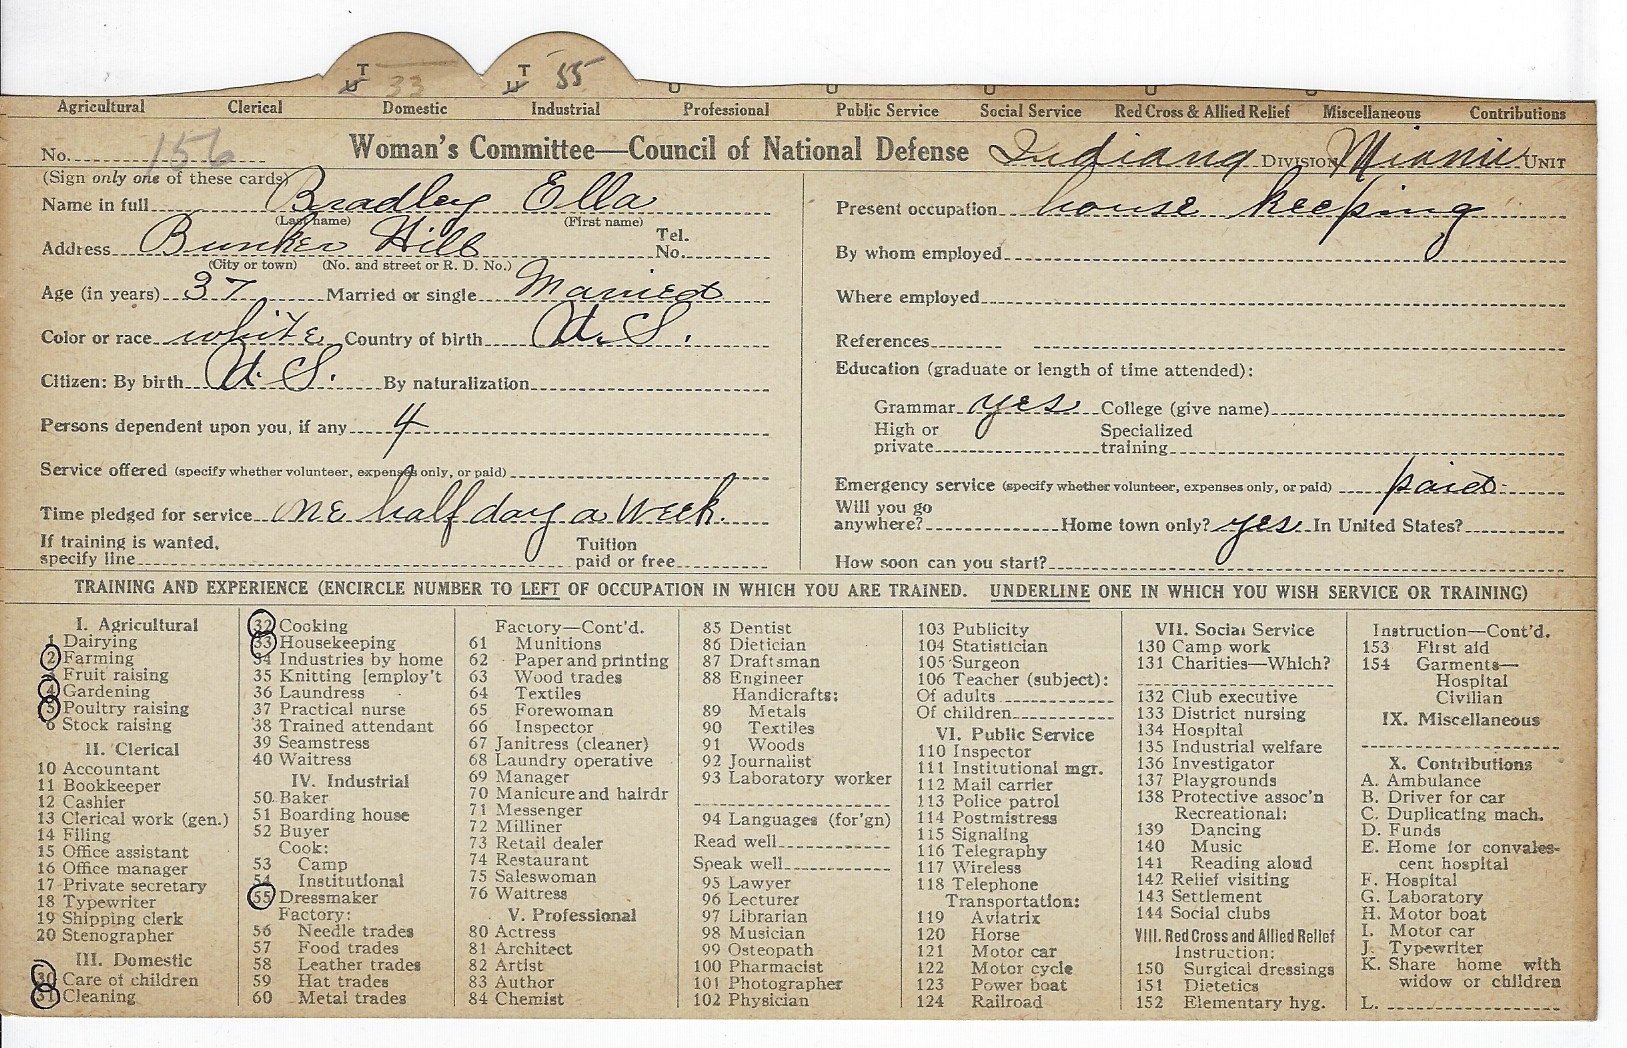 T U 33 T U 55
Agricultural Clerical Domestic Industrial Professional Public Service Social Service Red Cross & Allied Relief Miscellaneous Contributions
No. 156 Woman's Committee—Council of National Defense Indiana DIVISION Miami UNIT
(Sign only one of these cards)
Name in full Bradley Ella
(Last name) (First name)
Address Bunker Hill Tel. No.
(City or town) (No. and street or R. D. No.)
Age (in years) 37 Married or single Married
Color or race white Country of birth U.S.
Citizen: By birth U.S. By naturalization
Persons dependent upon you, if any 4
Service offered (specify whether volunteer, expenses only, or paid)
Time pledged for service one half day a week.
If training is wanted, specify line Tuition paid or free
Present occupation house keeping
By whom employed
Where employed
References
Education (graduate or length of time attended):
Grammar yes College (give name)
High or private Specialized training
Emergency service (specify whether volunteer, expenses only, or paid) paid
Will you go anywhere? Home town only? yes In United States?
How soon can you start?
TRAINING AND EXPERIENCE (ENCIRCLE NUMBER TO LEFT OF OCCUPATION IN WHICH YOU ARE TRAINED. UNDERLINE ONE IN WHICH YOU WISH SERVICE OR TRAINING)
I. Agricultural
1 Dairying
2 Farming
3 Fruit raising
4 Gardening
5 Poultry raising
6 Stock raising
II. Clerical
10 Accountant
11 Bookkeeper
12 Cashier
13 Clerical work (gen.)
14 Filing
15 Office assistant
16 Office manager
17 Private secretary
18 Typewriter
19 Shipping clerk
20 Stenographer
III. Domestic
30 Care of children
31 Cleaning
32 Cooking
33 Housekeeping
34 Industries by home
35 Knitting [employ't
36 Laundress
37 Practical nurse
38 Trained attendant
39 Seamstress
40 Waitress
IV. Industrial
50 Baker
51 Boarding house
52 Buyer
Cook:
53 Camp
54 Institutional
55 Dressmaker
Factory:
56 Needle trades
57 Food trades
58 Leather trades
59 Hat trades
60 Metal trades
Factory—Cont'd.
61 Munitions
62 Paper and printing
63 Wood trades
64 Textiles
65 Forewoman
66 Inspector
67 Janitress (cleaner)
68 Laundry operative
69 Manager
70 Manicure and hairdr
71 Messenger
72 Milliner
73 Retail dealer
74 Restaurant
75 Saleswoman
76 Waitress
V. Professional
80 Actress
81 Architect
82 Artist
83 Author
84 Chemist
85 Dentist
86 Dietician
87 Draftsman
88 Engineer
Handicrafts:
89 Metals
90 Textiles
91 Woods
92 Journalist
93 Laboratory worker
94 Languages (for'gn)
Read well
Speak well
95 Lawyer
96 Lecturer
97 Librarian
98 Musician
99 Osteopath
100 Pharmacist
101 Photographer
102 Physician
103 Publicity
104 Statistician
105 Surgeon
106 Teacher (subject):
Of adults
Of children
VI. Public Service
110 Inspector
111 Institutional mgr.
112 Mail carrier
113 Police patrol
114 Postmistress
115 Signaling
116 Telegraphy
117 Wireless
118 Telephone
Transportation:
119 Aviatrix
120 Horse
121 Motor car
122 Motor cycle
123 Power boat
124 Railroad
VII. Social Service
130 Camp work
131 Charities—Which?
132 Club executive
133 District nursing
134 Hospital
135 Industrial welfare
136 Investigator
137 Playgrounds
138 Protective assoc'n
Recreational:
139 Dancing
140 Music
141 Reading aloud
142 Relief visiting
143 Settlement
144 Social clubs
VIII. Red Cross and Allied Relief
Instruction:
150 Surgical dressings
151 Dietetics
152 Elementary hyg.
Instruction—Cont'd.
153 First aid
154 Garments—
Hospital
Civilian
IX. Miscellaneous
X. Contributions
A. Ambulance
B. Driver for car
C. Duplicating mach.
D. Funds
E. Home for convales-
cent hospital
F. Hospital
G. Laboratory
H. Motor boat
I. Motor car
J. Typewriter
K. Share home with
widow or children
L.